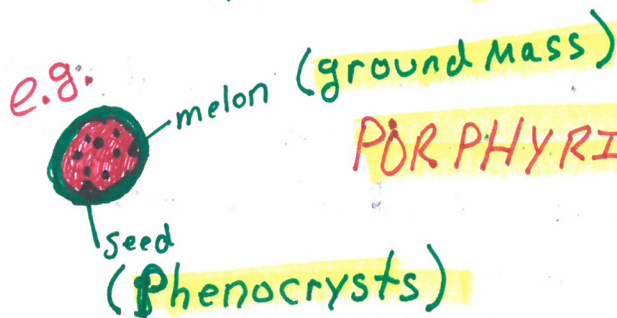 e.g.
melon (ground mass)
PORPHYRI
seed
(Phenocrysts)